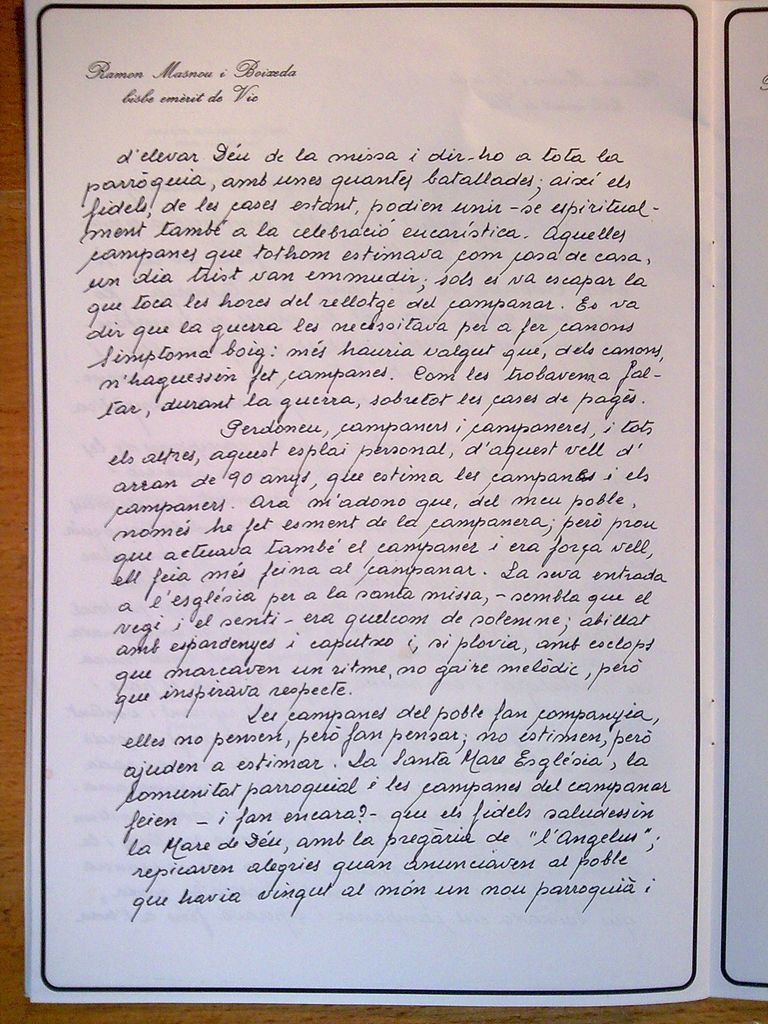 Ramon Masnou i Boixeda
bisbe emèrit de Vic
d'elevar Déu de la missa i dir-ho a tota la
parròquia, amb unes quantes batallades; així els
fidels, de les cases estant, podien unir-se espiritual-
ment també a la celebració eucarística. Aquelles
campanes que tothom estimava com cosa de casa,
un dia trist van emmudir; sols es va escapar la
que toca les hores del rellotge del campanar. Es va
dir que la guerra les necessitava per a fer canons
Símptoma boig: més hauria valgut que, dels canons,
n'haguessin fet campanes. Com les trobàvem a fal-
tar, durant la guerra, sobretot les cases de pagès.
Perdoneu, campaners i campaneres, i tots
els altres, aquest esplai personal, d'aquest vell d'
arran de 90 anys, que estima les campanes i els
campaners. Ara m'adono que, del meu poble,
només he fet esment de la campanera; però prou
que actuava també el campaner i era força vell,
ell feia més feina al campanar. La seva entrada
a l'església per a la santa missa, - sembla que el
vegi i el senti - era quelcom de solemne; abillat
amb espardenyes i caputxo i, si plovia, amb esclops
que marcaven un ritme, no gaire melòdic, però
que inspirava respecte.
Les campanes del poble fan companyia,
elles no pensen, però fan pensar; no estimen, però
ajuden a estimar. La Santa Mare Església, la
comunitat parroquial i les campanes del campanar
feien - i fan encara? - que els fidels saludessin
la Mare de Déu, amb la pregària de "l'Angelus";
repicaven alegries quan anunciaven al poble
que havia vingut al món un nou parroquià i